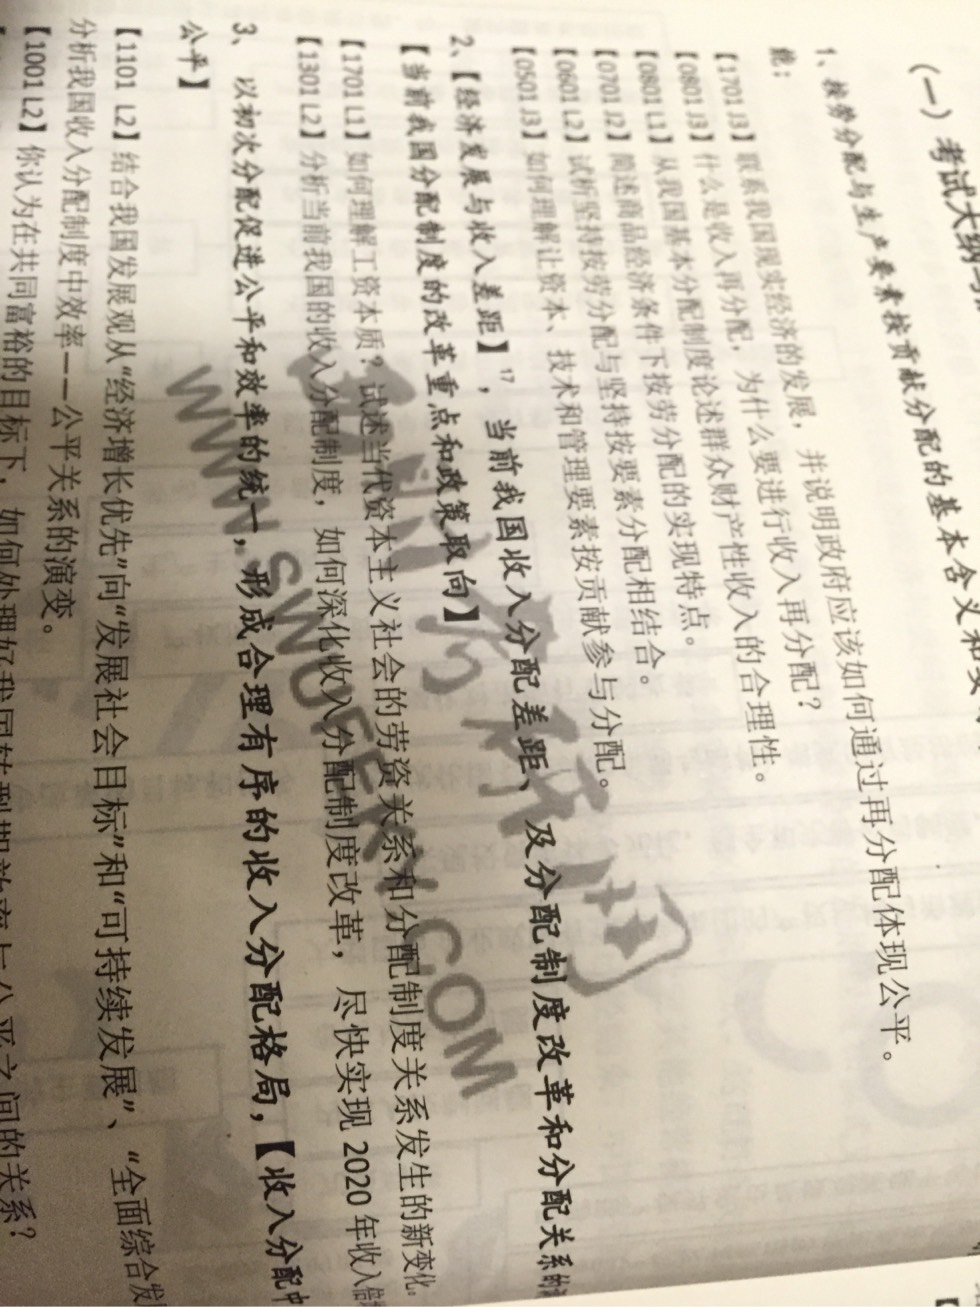 （一）考试大纲
1、按劳分配与生产要素按贡献分配的基本含义和
能：
【1701 J3】联系我国现实经济的发展，并说明政府应该如何通过再分配体现公平。
【0801 J3】什么是收入再分配，为什么要进行收入再分配？
【0801 L1】从我国基本分配制度论述群众财产性收入的合理性。
【0701 J2】简述商品经济条件下按劳分配的实现特点。
【0601 L2】试析坚持按劳分配与坚持按要素分配相结合。
【0501 J3】如何理解让资本、技术和管理要素按贡献参与分配。
2、【经济发展与收入差距】17，当前我国收入分配差距、及分配制度改革和分配关系的
【当前我国分配制度的改革重点和政策取向】
【1701 L1】如何理解工资本质？试述当代资本主义社会的劳资关系和分配制度关系发生的新变化
【1301 L2】分析当前我国的收入分配制度，如何深化收入分配制度改革，尽快实现 2020 年收入
3、以初次分配促进公平和效率的统一，形成合理有序的收入分配格局，【收入分配中
公平】
【1101 L2】结合我国发展观从“经济增长优先”向“发展社会目标”和“可持续发展”、“全面综合发
分析我国收入分配制度中效率——公平关系的演变。
【1001 L2】你认为在共同富裕的目标下，如何处理好我国转型期效率与公平之间的关系？
WWW.SWUFEKY.COM